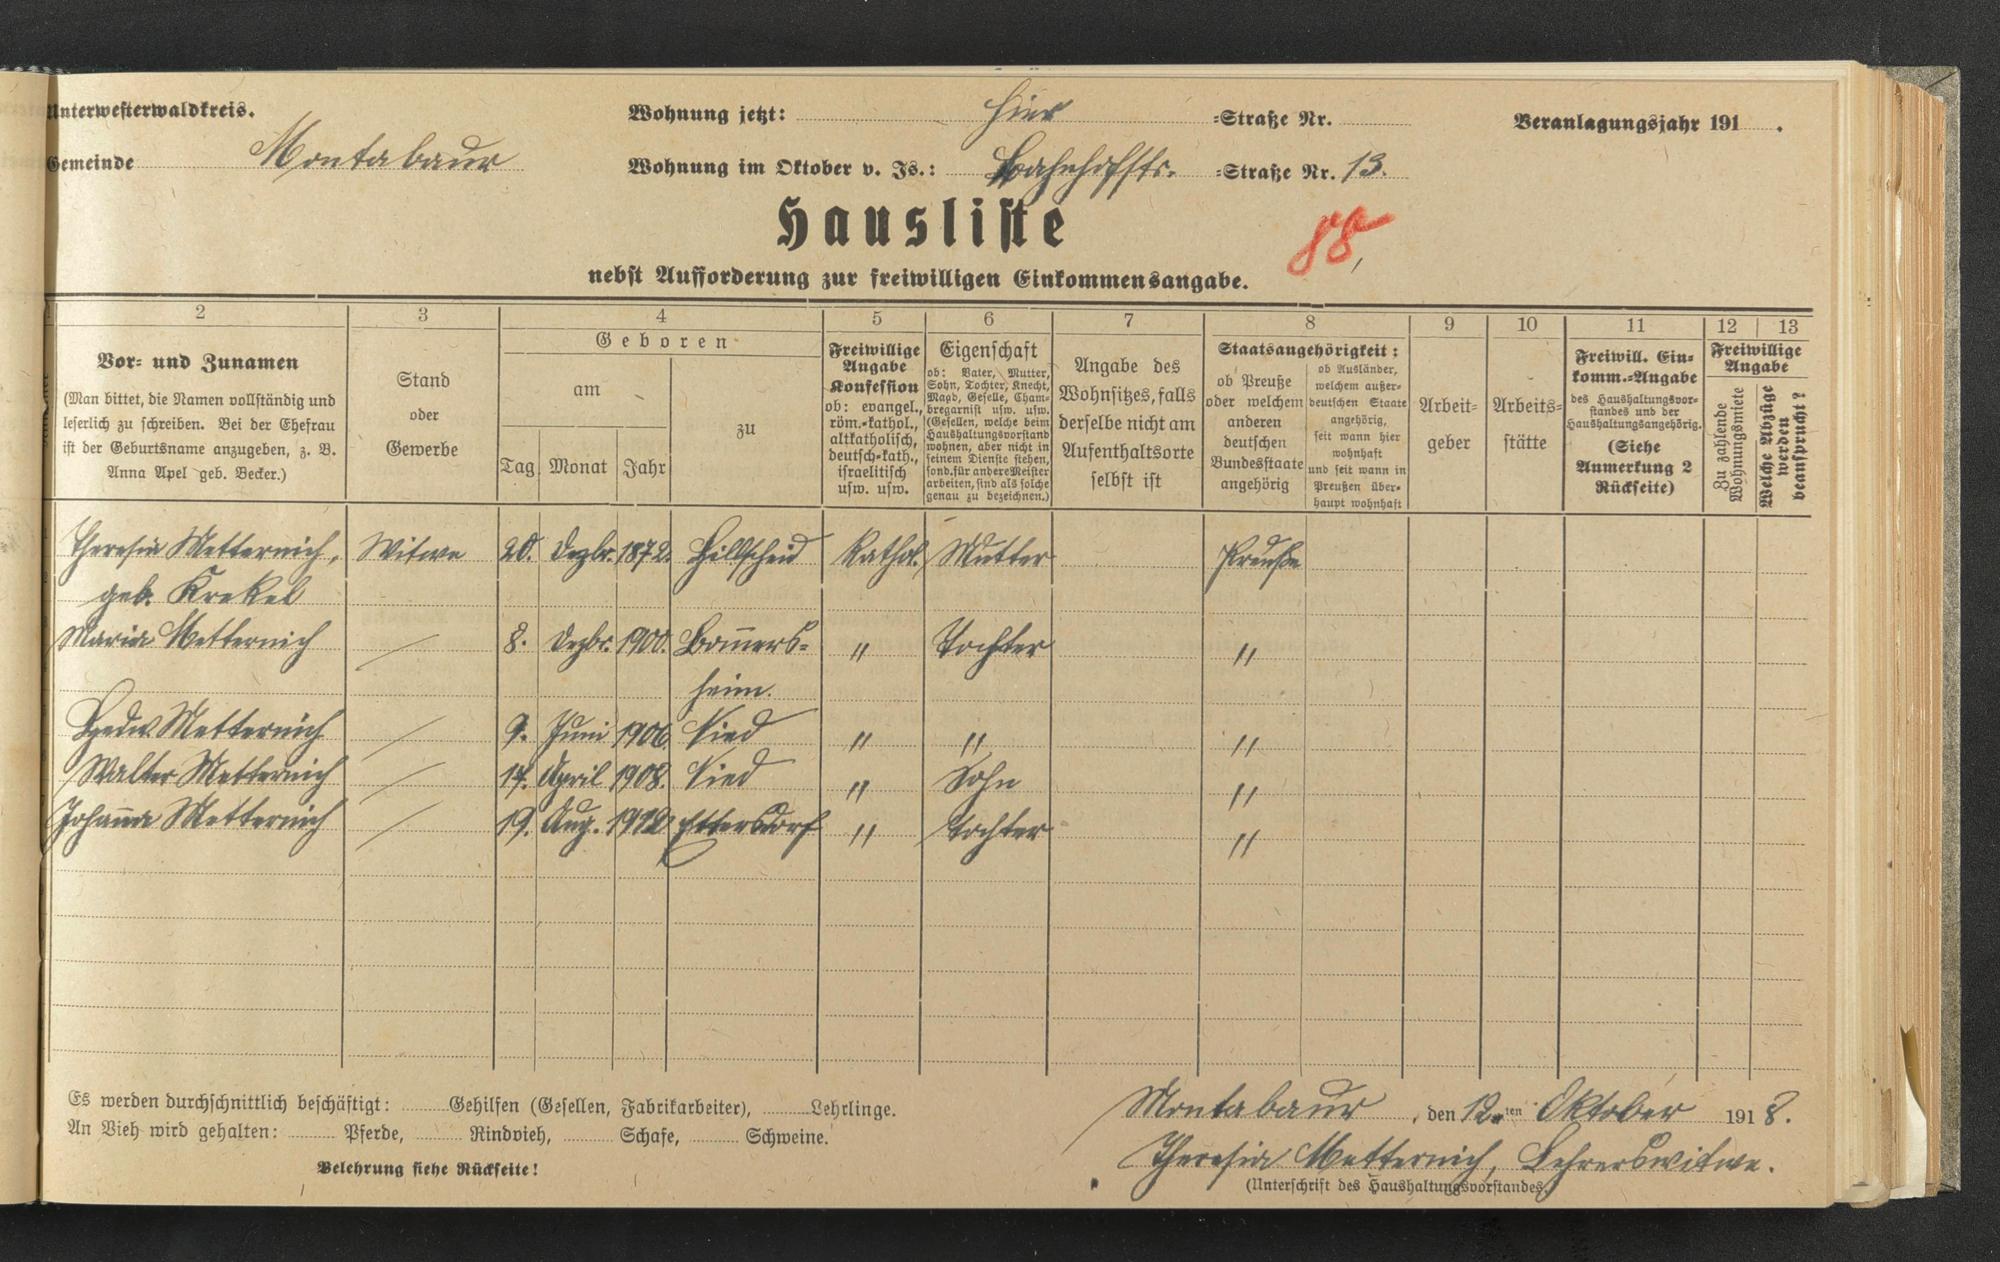 Unterwesterwaldkreis.
Gemeinde Montabaur
Wohnung jetzt: hier -Straße Nr.
Wohnung im Oktober v. Js.: Bahnhofstr. -Straße Nr. 13.
Veranlagungsjahr 191 .
Hausliste
88
nebst Aufforderung zur freiwilligen Einkommensangabe.
2 3 4 5 6 7 8 9 10 11 12 13
Vor- und Zunamen
(Man bittet, die Namen vollständig und
leserlich zu schreiben. Bei der Ehefrau
ist der Geburtsname anzugeben, z. B.
Anna Apel geb. Becker.)
Stand
oder
Gewerbe
Geboren
am
Tag Monat Jahr
zu
Freiwillige
Angabe
Konfession
ob: evangel.,
röm.-kathol.,
altkatholisch,
deutsch-kath.,
israelitisch
usw. usw.
Eigenschaft
ob: Vater, Mutter,
Sohn, Tochter, Knecht,
Magd, Geselle, Cham-
bregarnist usw. usw.
(Gesellen, welche beim
Haushaltungsvorstand
wohnen, aber nicht in
seinem Dienste stehen,
sond. für andere Meister
arbeiten, sind als solche
genau zu bezeichnen.)
Angabe des
Wohnsitzes, falls
derselbe nicht am
Aufenthaltsorte
selbst ist
Staatsangehörigkeit:
ob Preuße
oder welchem
anderen
deutschen
Bundesstaate
angehörig
ob Ausländer,
welchem außer-
deutschen Staate
angehörig,
seit wann hier
wohnhaft
und seit wann in
Preußen über-
haupt wohnhaft
Arbeit-
geber
Arbeits-
stätte
Freiwill. Ein-
komm.-Angabe
des Haushaltungsvor-
standes und der
Haushaltungsangehörig.
(Siehe
Anmerkung 2
Rückseite)
Freiwillige
Angabe
Zu zahlende
Wohnungsmiete
Welche Abzüge
werden
beansprucht?
Theresia Metternich, Witwe 20. Dezbr. 1872. Hillscheid Kathol. Mutter Preuße
geb. Krekel
Maria Metternich / 8. Dezbr. 1900. Bom̄ers- " Tochter "
heim.
Hedw. Metternich / 9. Juni 1906 Nied " " "
Walter Metternich / 17. April 1908. Nied " Sohn "
Johan̄a Metternich / 19. Aug. 1912 Ettersdorf " Tochter "
Es werden durchschnittlich beschäftigt: Gehilfen (Gesellen, Fabrikarbeiter), Lehrlinge.
An Vieh wird gehalten: Pferde, Rindvieh, Schafe, Schweine.
Belehrung siehe Rückseite!
Montabaur, den 12. ten Oktober 1918.
Theresia Metternich, Lehrerswitwe.
(Unterschrift des Haushaltungsvorstandes)